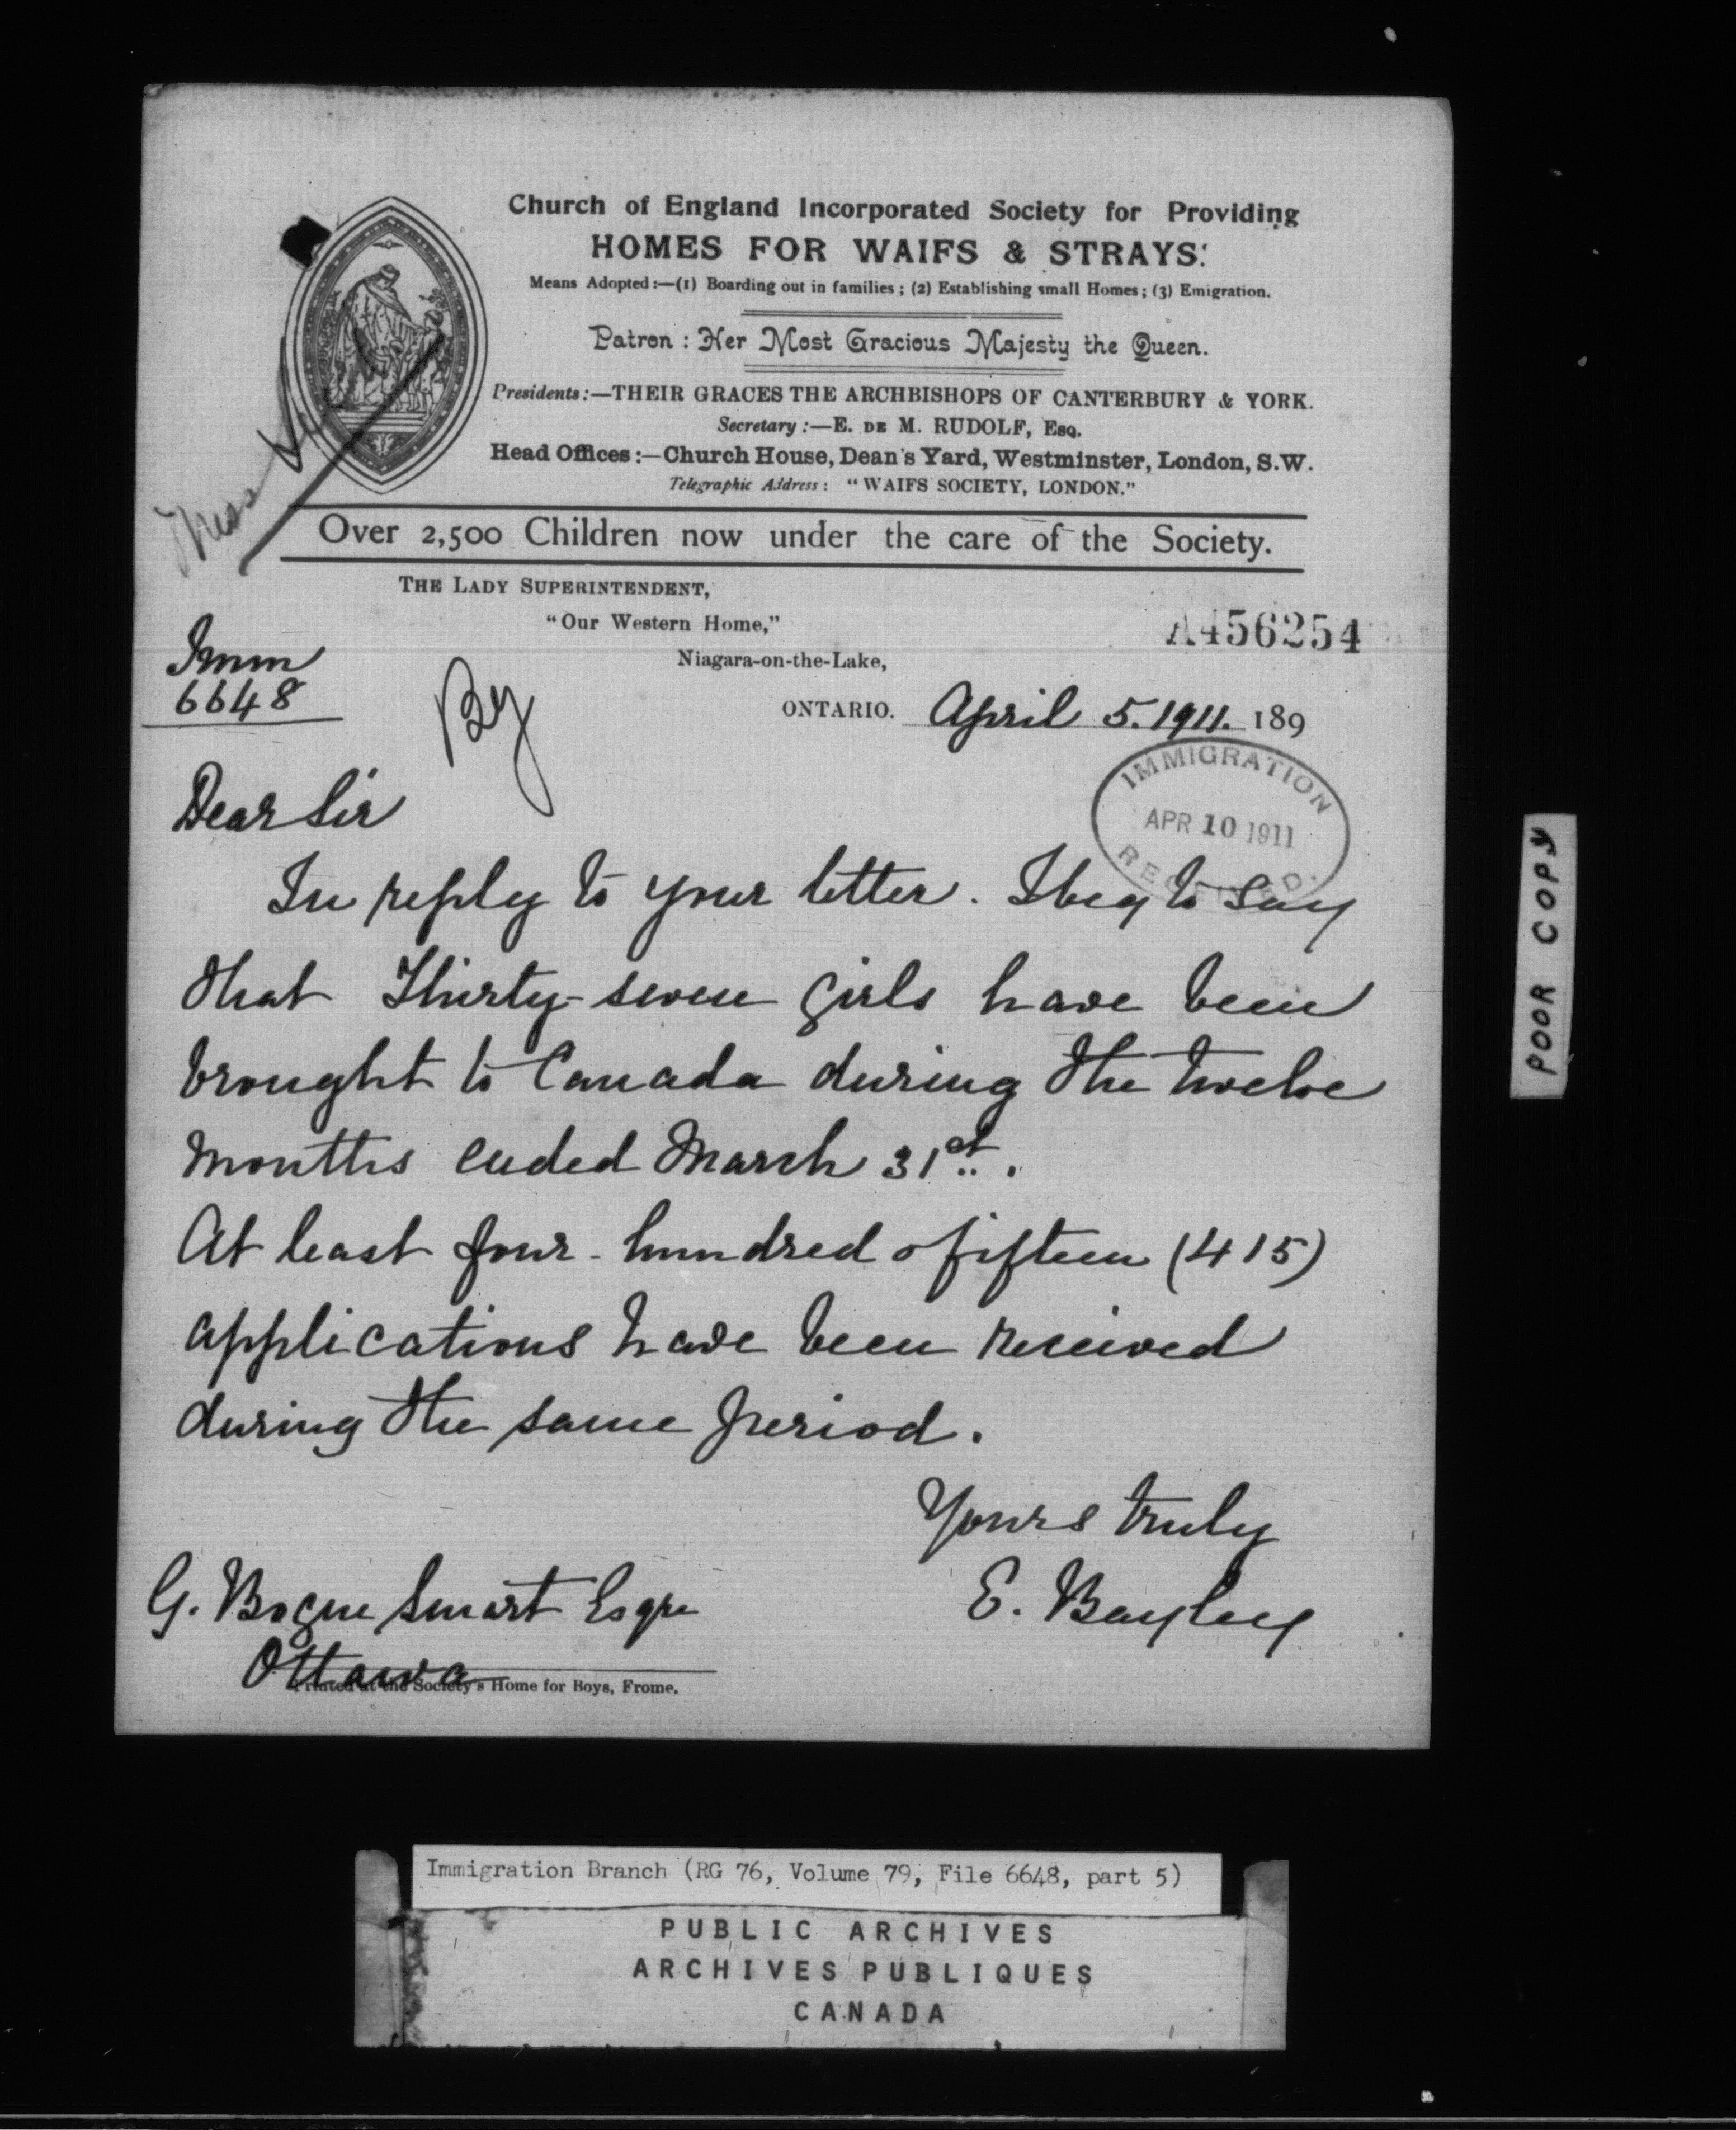 Church of England Incorporated Society for Providing
HOMES FOR WAIFS & STRAYS.
Means Adopted:—(1) Boarding out in families; (2) Establishing small Homes; (3) Emigration.
Patron: Her Most Gracious Majesty the Queen.
Presidents:—THEIR GRACES THE ARCHBISHOPS OF CANTERBURY & YORK.
Secretary:—E. DE M. RUDOLF, ESQ.
Head Offices:—Church House, Dean's Yard, Westminster, London, S.W.
Telegraphic Address: "WAIFS SOCIETY, LONDON."
Miss
Over 2,500 Children now under the care of the Society.
THE LADY SUPERINTENDENT,
"Our Western Home,"
A456254
Niagara-on-the-Lake,
Imm
6648
ONTARIO. April 5. 1911. 189
IMMIGRATION
APR 10 1911
RECEIVED.
Dear Sir
In reply to your letter. I beg to say
that Thirty-seven girls have been
brought to Canada during the twelve
months ended March 31st.
At least four-hundred & fifteen (415)
applications have been received
during the same period.
Yours truly
E. Bayley
G. Bogue Smart Esqre
Ottawa
Printed at the Society's Home for Boys, Frome.
POOR COPY
Immigration Branch (RG 76, Volume 79, File 6648, part 5)
PUBLIC ARCHIVES
ARCHIVES PUBLIQUES
CANADA